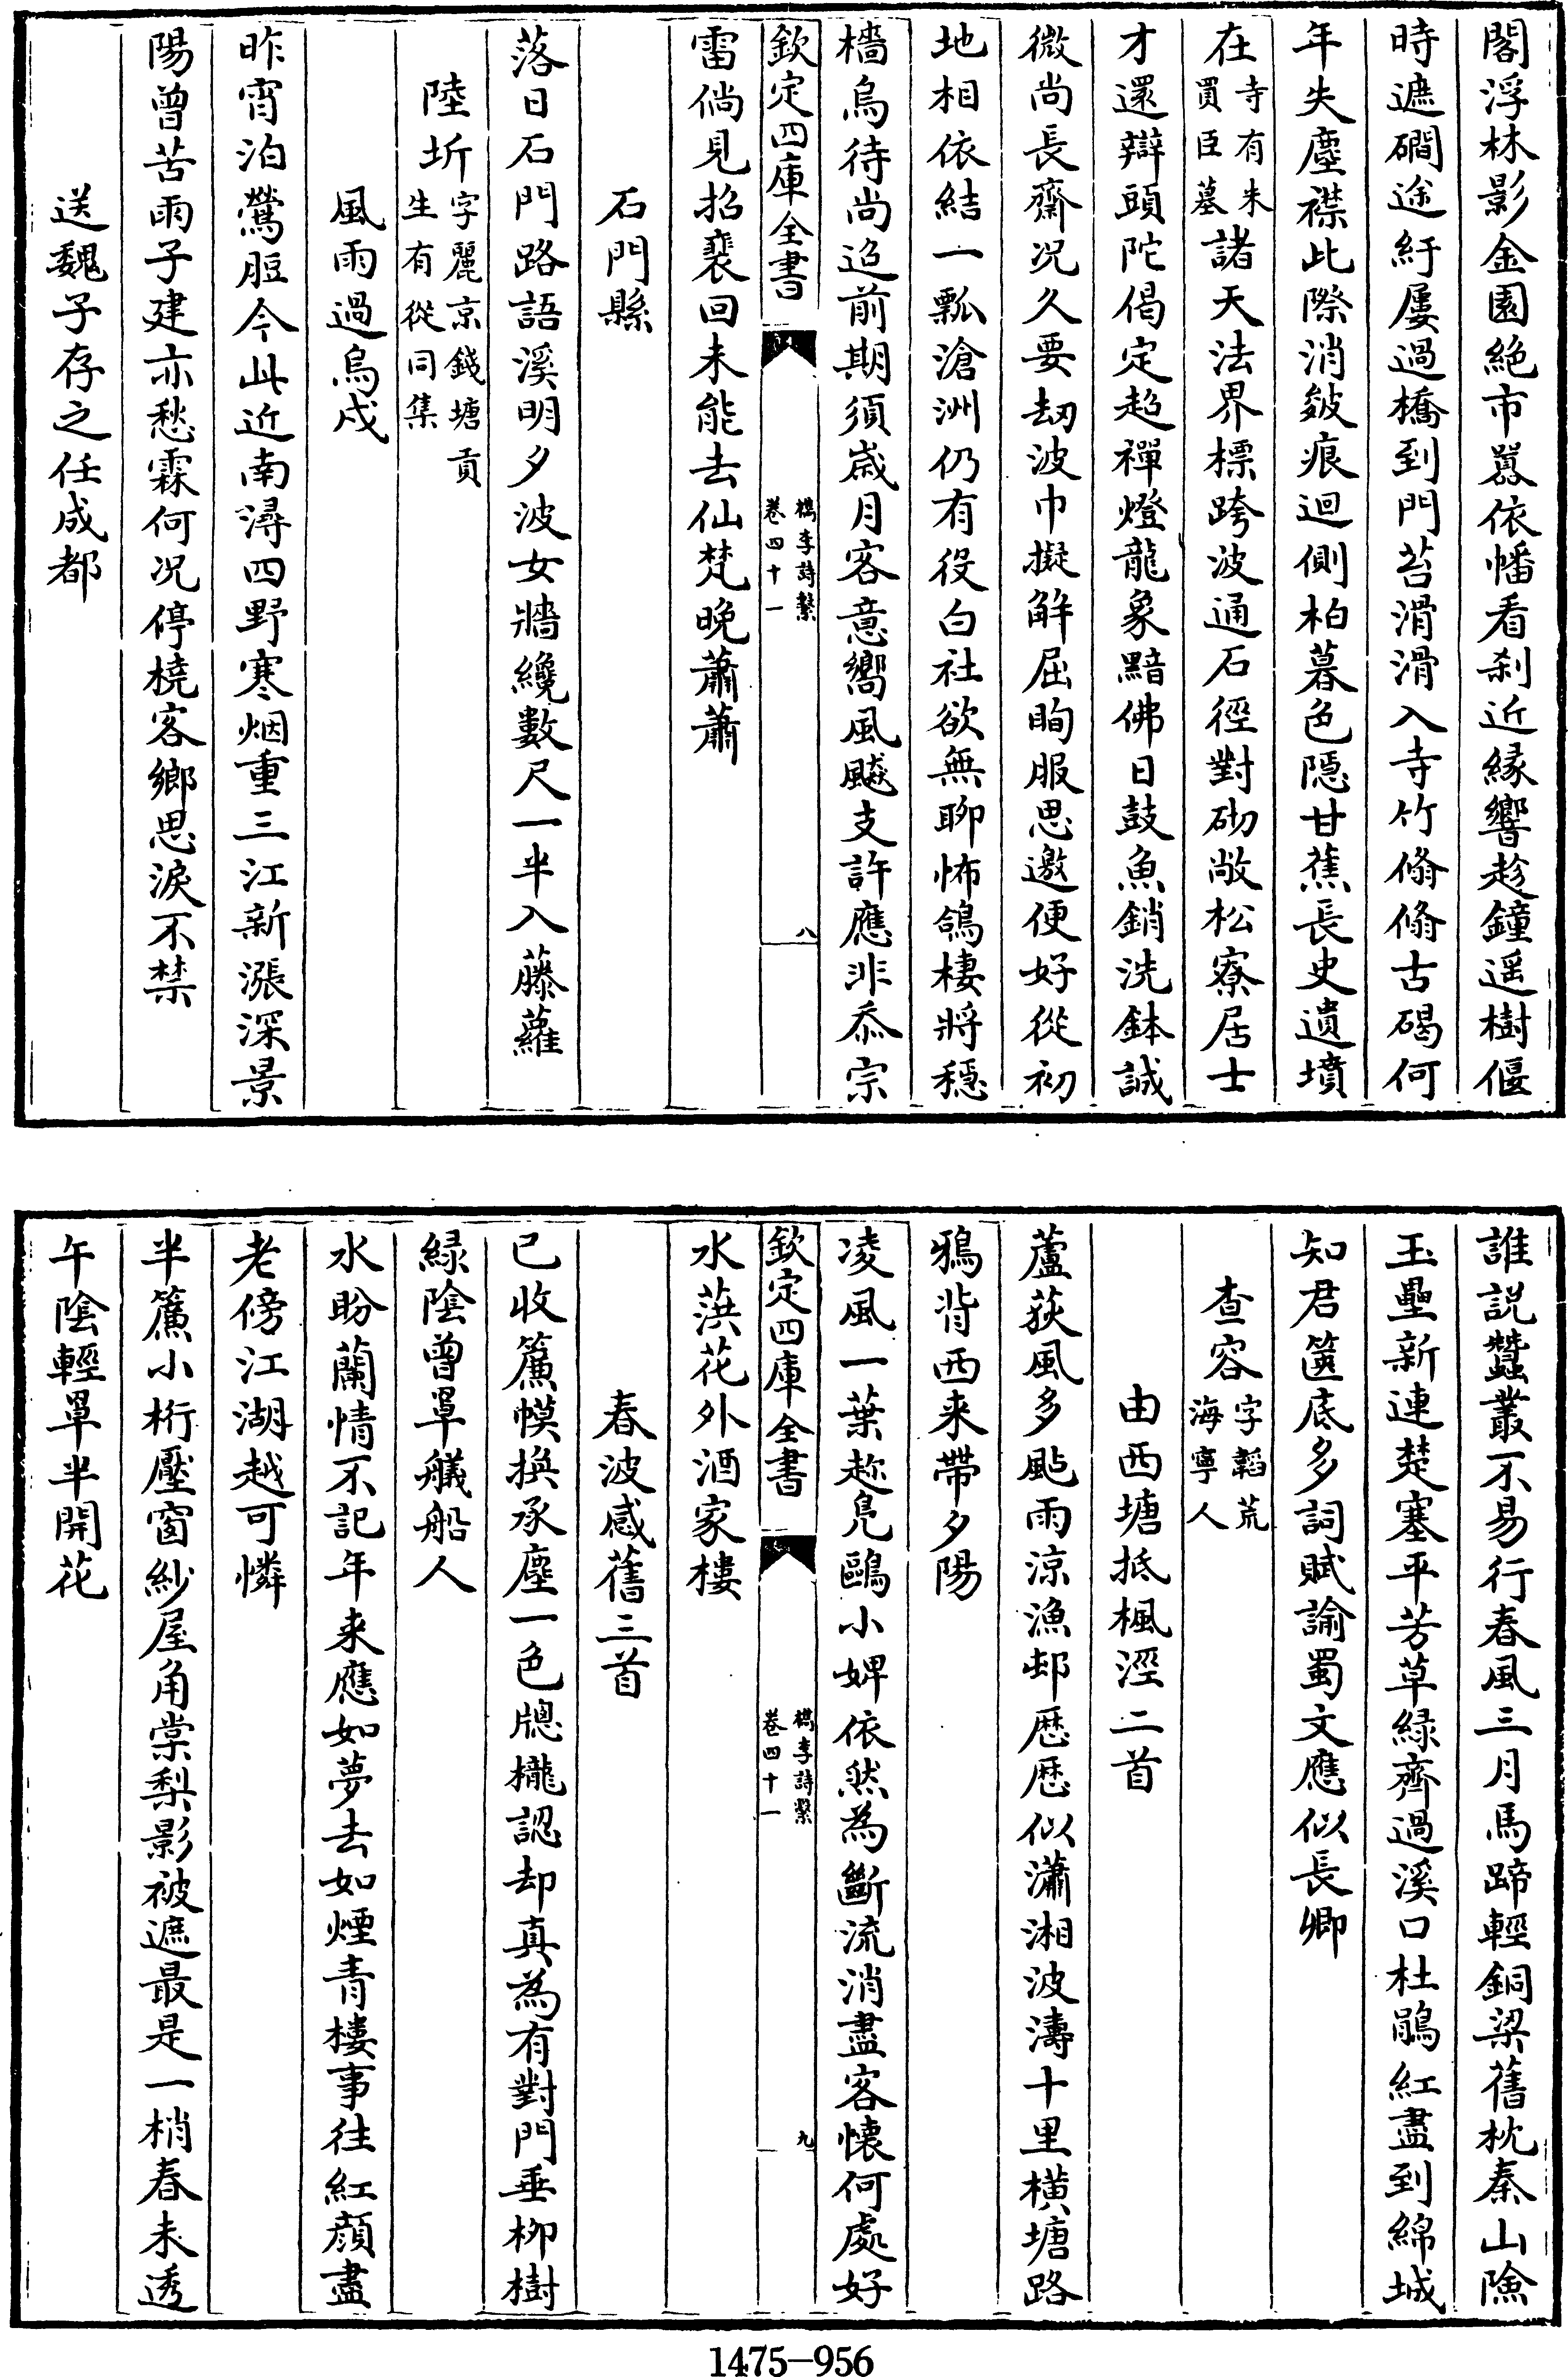 閣浮林影金園絶市囂依幡看刹近緣響趁鐘遥樹偃
時遮磵途紆屢過橋到門苔滑滑入寺竹翛翛古碣何
年失塵襟此際消皴痕迴側柏暮色隱甘蕉長史遺墳
在寺有朱買臣墓諸天法界標跨波通石徑對砌敞松寮居士
才還辯頭陀偈定超禪燈龍象黯佛日鼓魚銷洗鉢誠
微尚長齋况久要刼波巾擬解屈眴服思邀便好從初
地相依結一瓢滄洲仍有役白社欲無聊怖鴿棲將穩
檣烏待尚迢前期須歲月客意嚮風飈支許應非忝宗
欽定四庫全書
檇李詩繫
卷四十一
八
雷倘見招裴回未能去仙梵晚蕭蕭
石門縣
落日石門路語溪明夕波女牆纔數尺一半入藤蘿
陸圻字麗京錢塘貢生有從同集
風雨過烏戍
昨宵泊鶯脰今此近南潯四野寒烟重三江新漲深景
陽曾苦雨子建亦愁霖何况停橈客鄉思淚不禁
送魏子存之任成都
誰説蠶叢不易行春風三月馬蹄輕銅梁舊枕秦山險
玉壘新連楚塞平芳草緑齊過溪口杜鵑紅盡到綿城
知君篋底多詞賦諭蜀文應似長卿
查容字韜荒海寧人
由西塘抵楓涇二首
蘆荻風多颭雨涼漁邨歴歴似瀟湘波濤十里横塘路
鴉背西来帶夕陽
凌風一葉趂鳬鷗小婢依然為斷流消盡客懐何處好
欽定四庫全書
檇李詩繫
卷四十一
九
水葓花外酒家樓
春波感舊三首
已收簾幙換承塵一色牕櫳認却真為有對門垂柳樹
緑陰曾罩艤船人
水盼蘭情不記年来應如夢去如煙青樓事往紅顔盡
老傍江湖越可憐
半簾小桁壓窗紗屋角棠梨影被遮最是一梢春未透
午陰輕罩半開花
1475-956